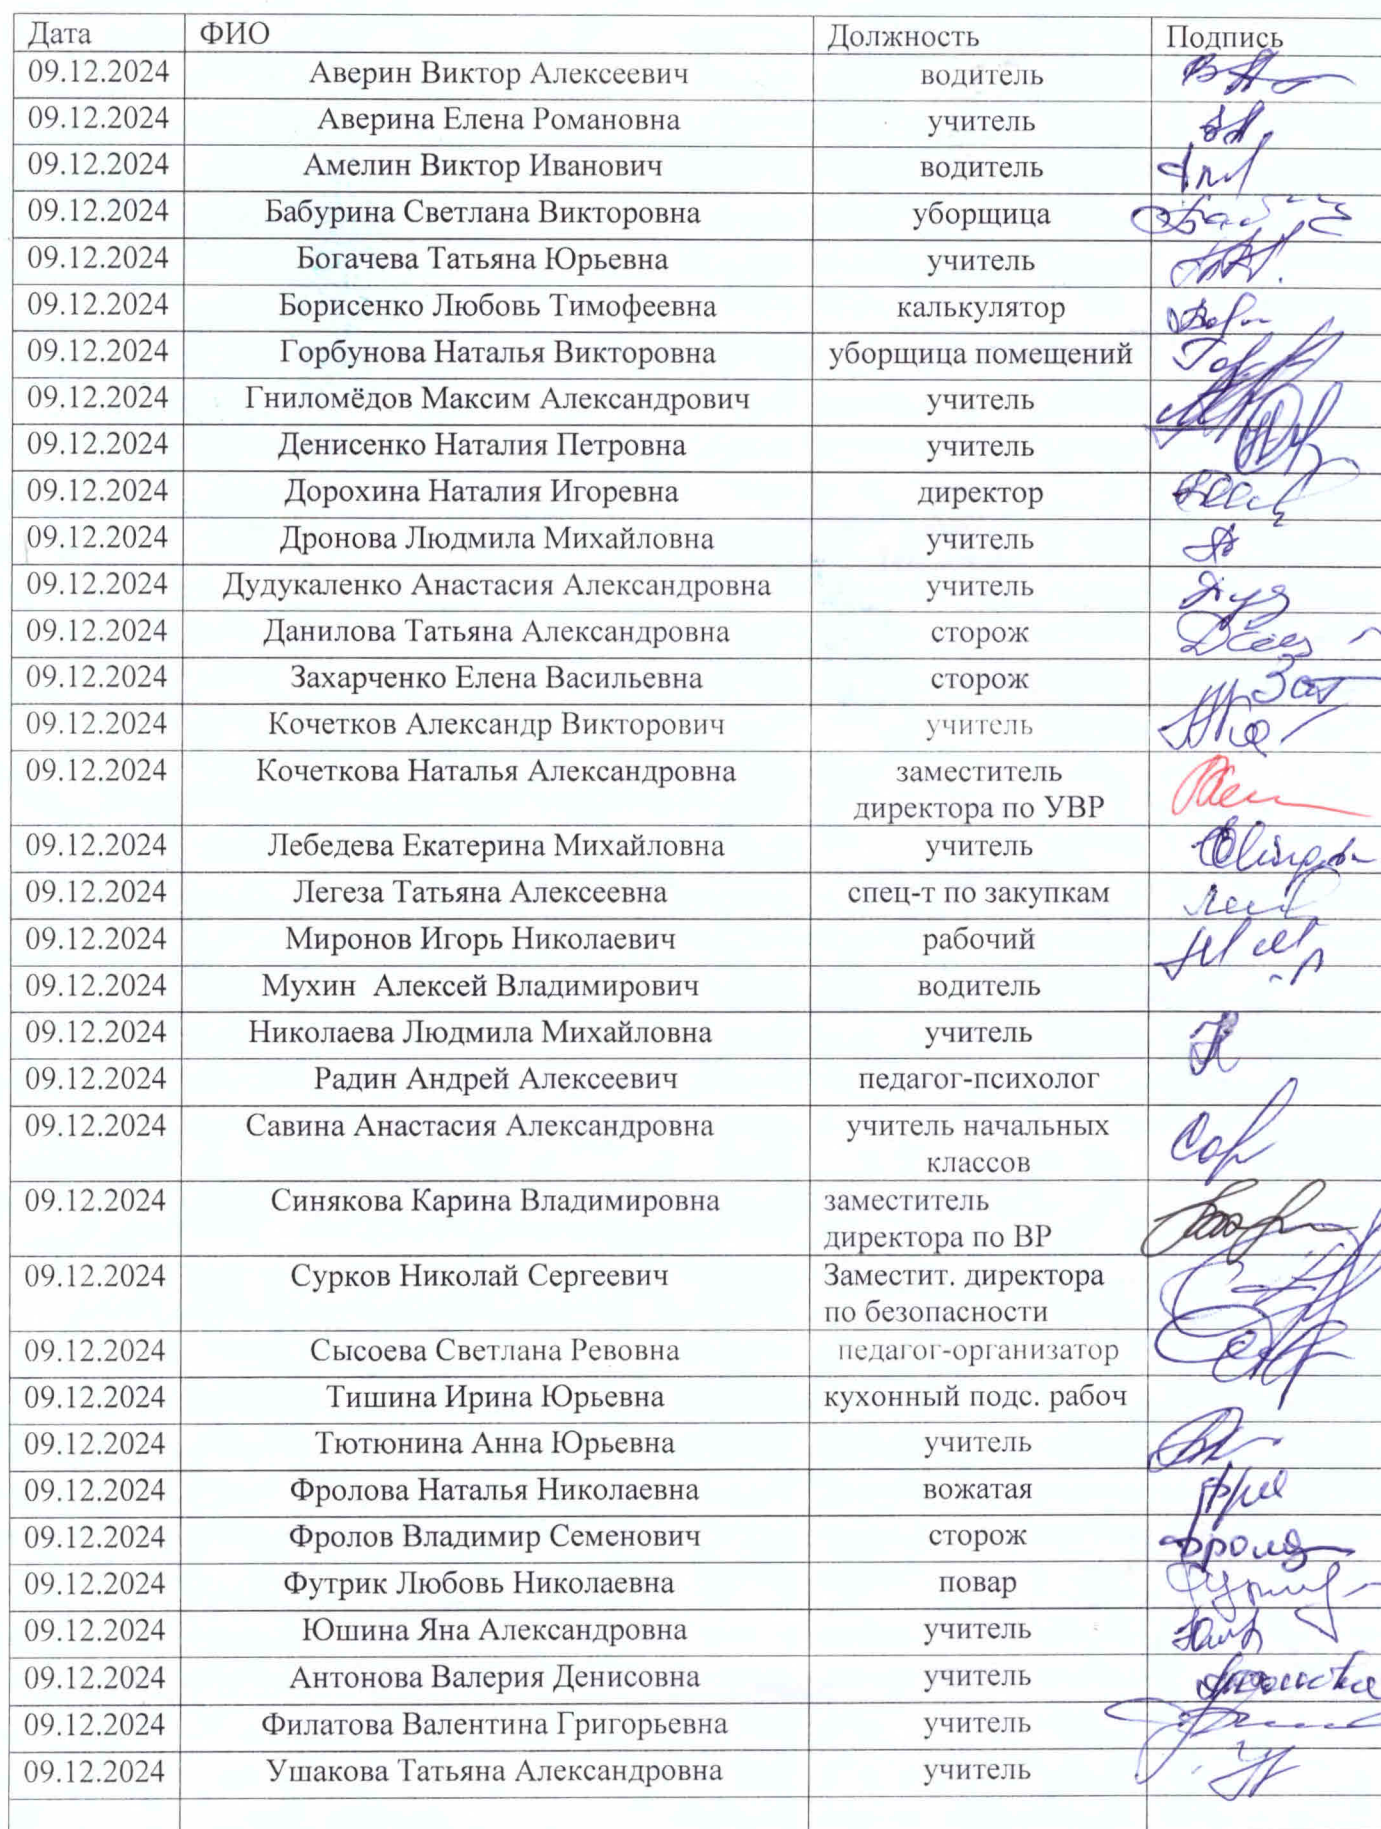 Дата ФИО Должность Подпись
09.12.2024 Аверин Виктор Алексеевич водитель
09.12.2024 Аверина Елена Романовна учитель
09.12.2024 Амелин Виктор Иванович водитель
09.12.2024 Бабурина Светлана Викторовна уборщица
09.12.2024 Богачева Татьяна Юрьевна учитель
09.12.2024 Борисенко Любовь Тимофеевна калькулятор
09.12.2024 Горбунова Наталья Викторовна уборщица помещений
09.12.2024 Гниломёдов Максим Александрович учитель
09.12.2024 Денисенко Наталия Петровна учитель
09.12.2024 Дорохина Наталия Игоревна директор
09.12.2024 Дронова Людмила Михайловна учитель
09.12.2024 Дудукаленко Анастасия Александровна учитель
09.12.2024 Данилова Татьяна Александровна сторож
09.12.2024 Захарченко Елена Васильевна сторож
09.12.2024 Кочетков Александр Викторович учитель
09.12.2024 Кочеткова Наталья Александровна заместитель
директора по УВР
09.12.2024 Лебедева Екатерина Михайловна учитель
09.12.2024 Легеза Татьяна Алексеевна спец-т по закупкам
09.12.2024 Миронов Игорь Николаевич рабочий
09.12.2024 Мухин Алексей Владимирович водитель
09.12.2024 Николаева Людмила Михайловна учитель
09.12.2024 Радин Андрей Алексеевич педагог-психолог
09.12.2024 Савина Анастасия Александровна учитель начальных
классов
09.12.2024 Синякова Карина Владимировна заместитель
директора по ВР
09.12.2024 Сурков Николай Сергеевич Заместит. директора
по безопасности
09.12.2024 Сысоева Светлана Ревовна педагог-организатор
09.12.2024 Тишина Ирина Юрьевна кухонный подс. рабоч
09.12.2024 Тютюнина Анна Юрьевна учитель
09.12.2024 Фролова Наталья Николаевна вожатая
09.12.2024 Фролов Владимир Семенович сторож
09.12.2024 Футрик Любовь Николаевна повар
09.12.2024 Юшина Яна Александровна учитель
09.12.2024 Антонова Валерия Денисовна учитель
09.12.2024 Филатова Валентина Григорьевна учитель
09.12.2024 Ушакова Татьяна Александровна учитель